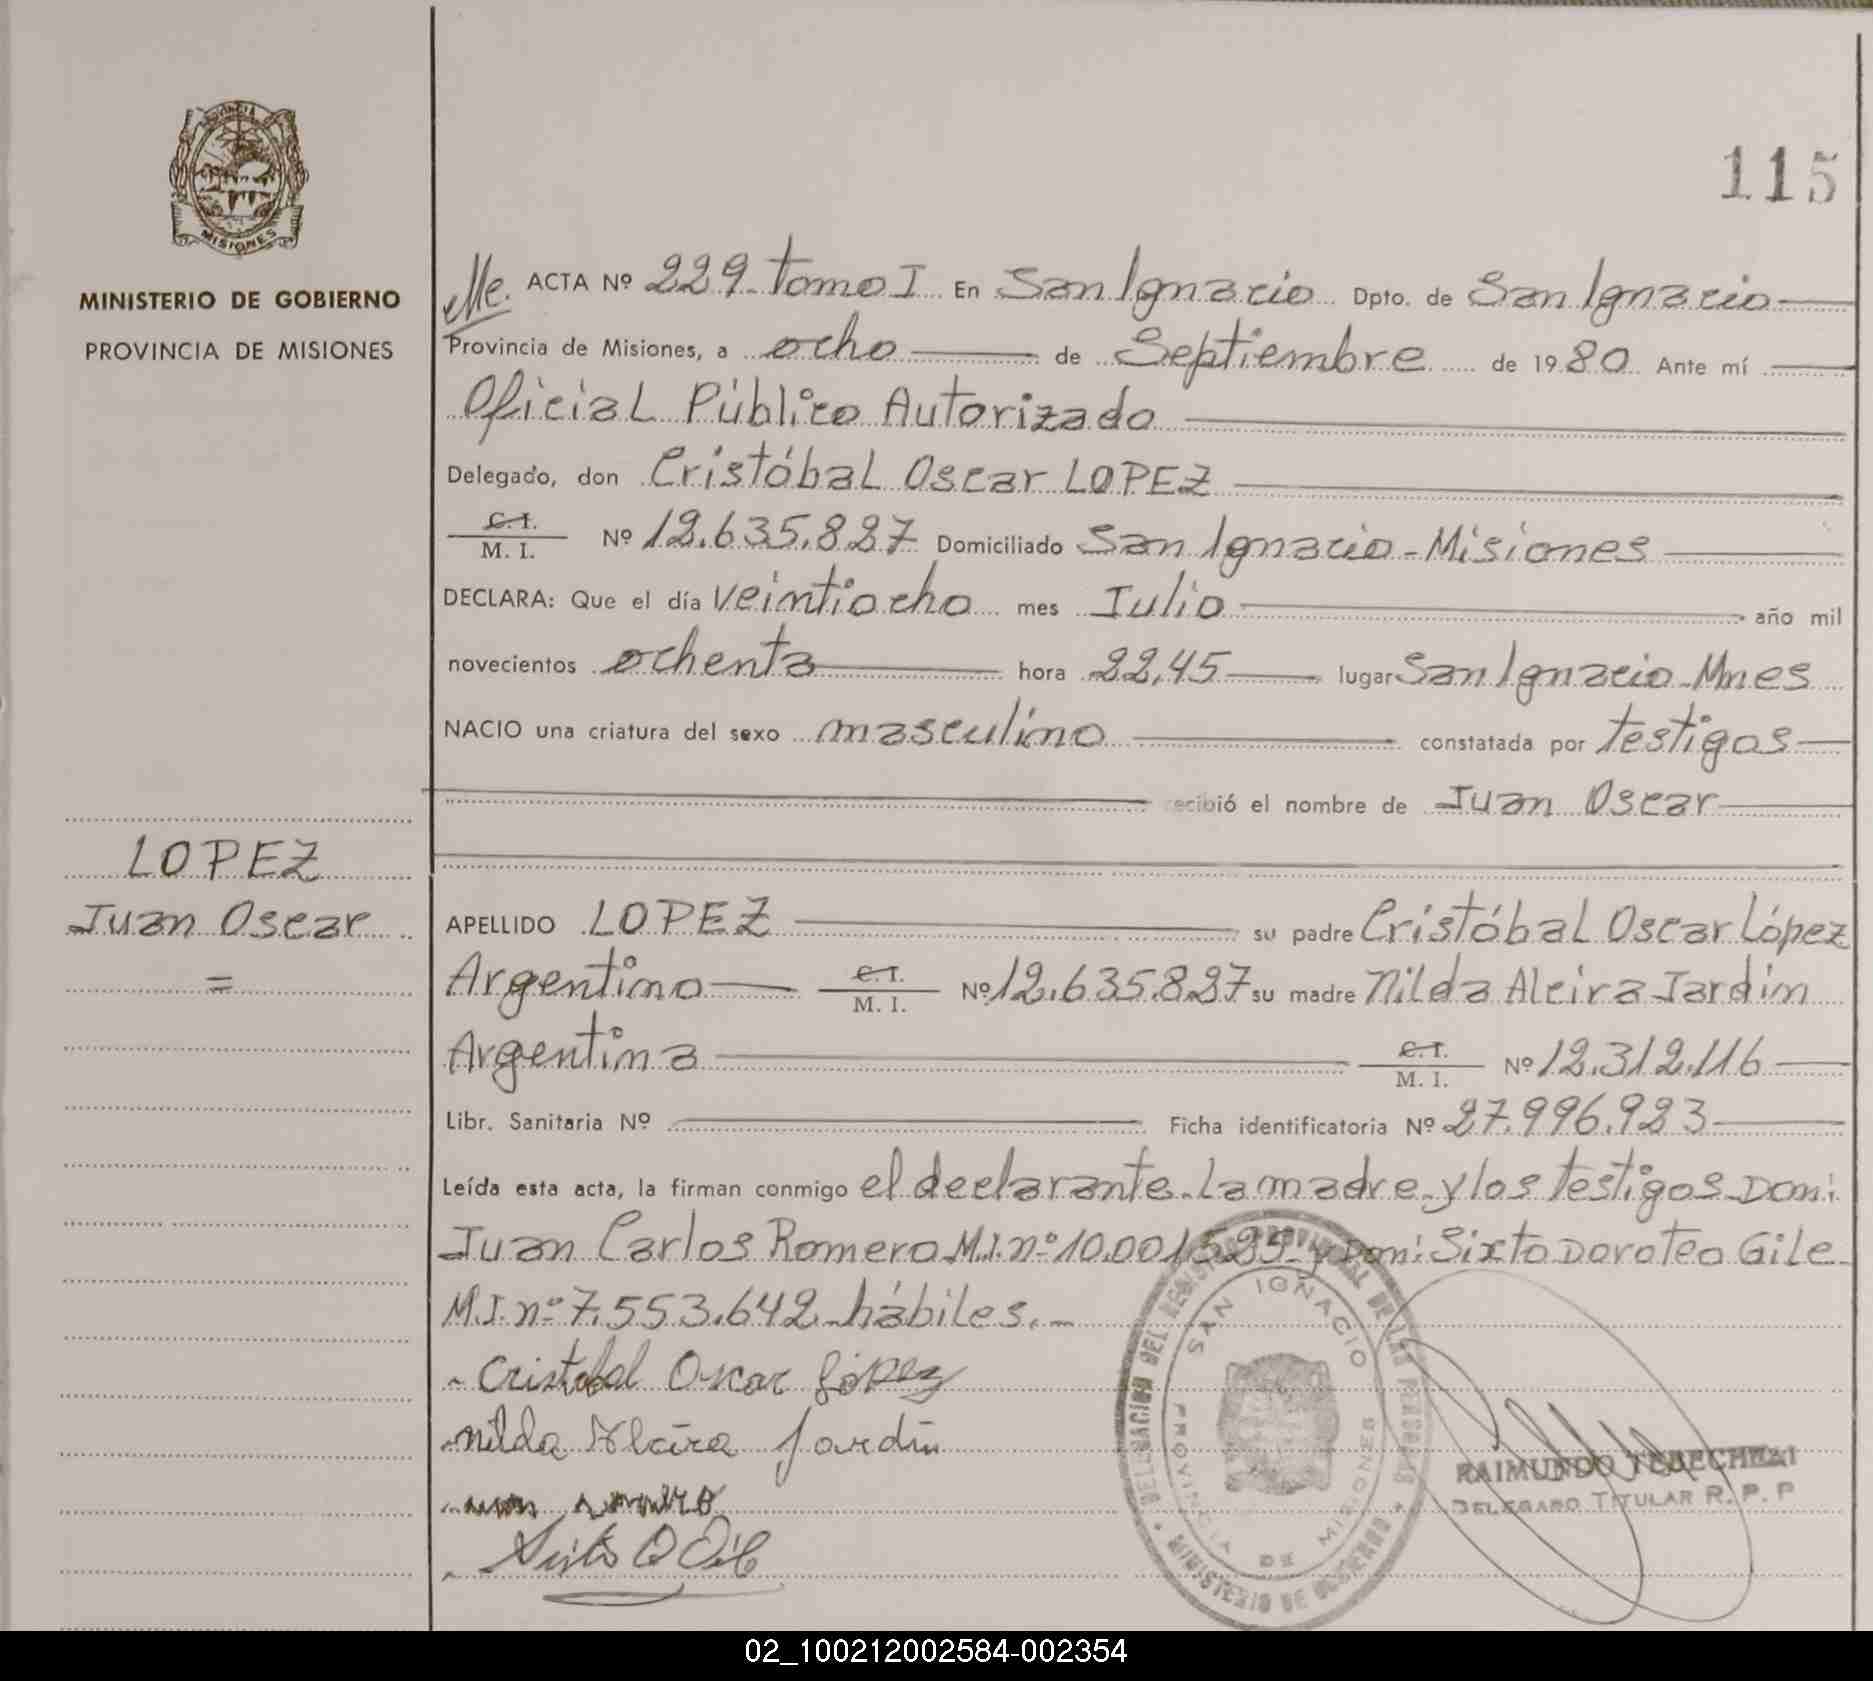 PROVINCIA
MISIONES
MINISTERIO DE GOBIERNO
PROVINCIA DE MISIONES
LOPEZ
Juan Oscar
=
115
Me. ACTA Nº 229 - Tomo I En San Ignacio Dpto. de San Ignacio
Provincia de Misiones, a ocho de Septiembre de 1980 Ante mí
Oficial Público Autorizado
Delegado, don Cristóbal Oscar LOPEZ
C.I.
M. I. Nº 12.635.827 Domiciliado San Ignacio - Misiones
DECLARA: Que el día veintiocho mes Julio año mil
novecientos ochenta hora 22,45 lugar San Ignacio - Mnes
NACIO una criatura del sexo masculino constatada por testigos
recibió el nombre de Juan Oscar
APELLIDO LOPEZ su padre Cristóbal Oscar López
Argentino C.I. M. I. Nº 12.635.827 su madre Nilda Alcira Jardin
Argentina C.I. M. I. Nº 12.312.116
Libr. Sanitaria Nº Ficha identificatoria Nº 27.996.923
Leída esta acta, la firman conmigo el declarante - la madre - y los testigos - Don:
Juan Carlos Romero M.I. nº 10.001.529 - y Don: Sixto Doroteo Gile -
M.I. nº 7.553.642 - hábiles. -
- Cristobal Oscar López
nilda Alcira Jardin
DELEGACION DEL REGISTRO PROVINCIAL DE LAS PERSONAS
MINISTERIO DE GOBIERNO
SAN IGNACIO
PROVINCIA DE MISIONES
RAIMUNDO
DELEGADO TITULAR R. P. P
02_100212002584-002354